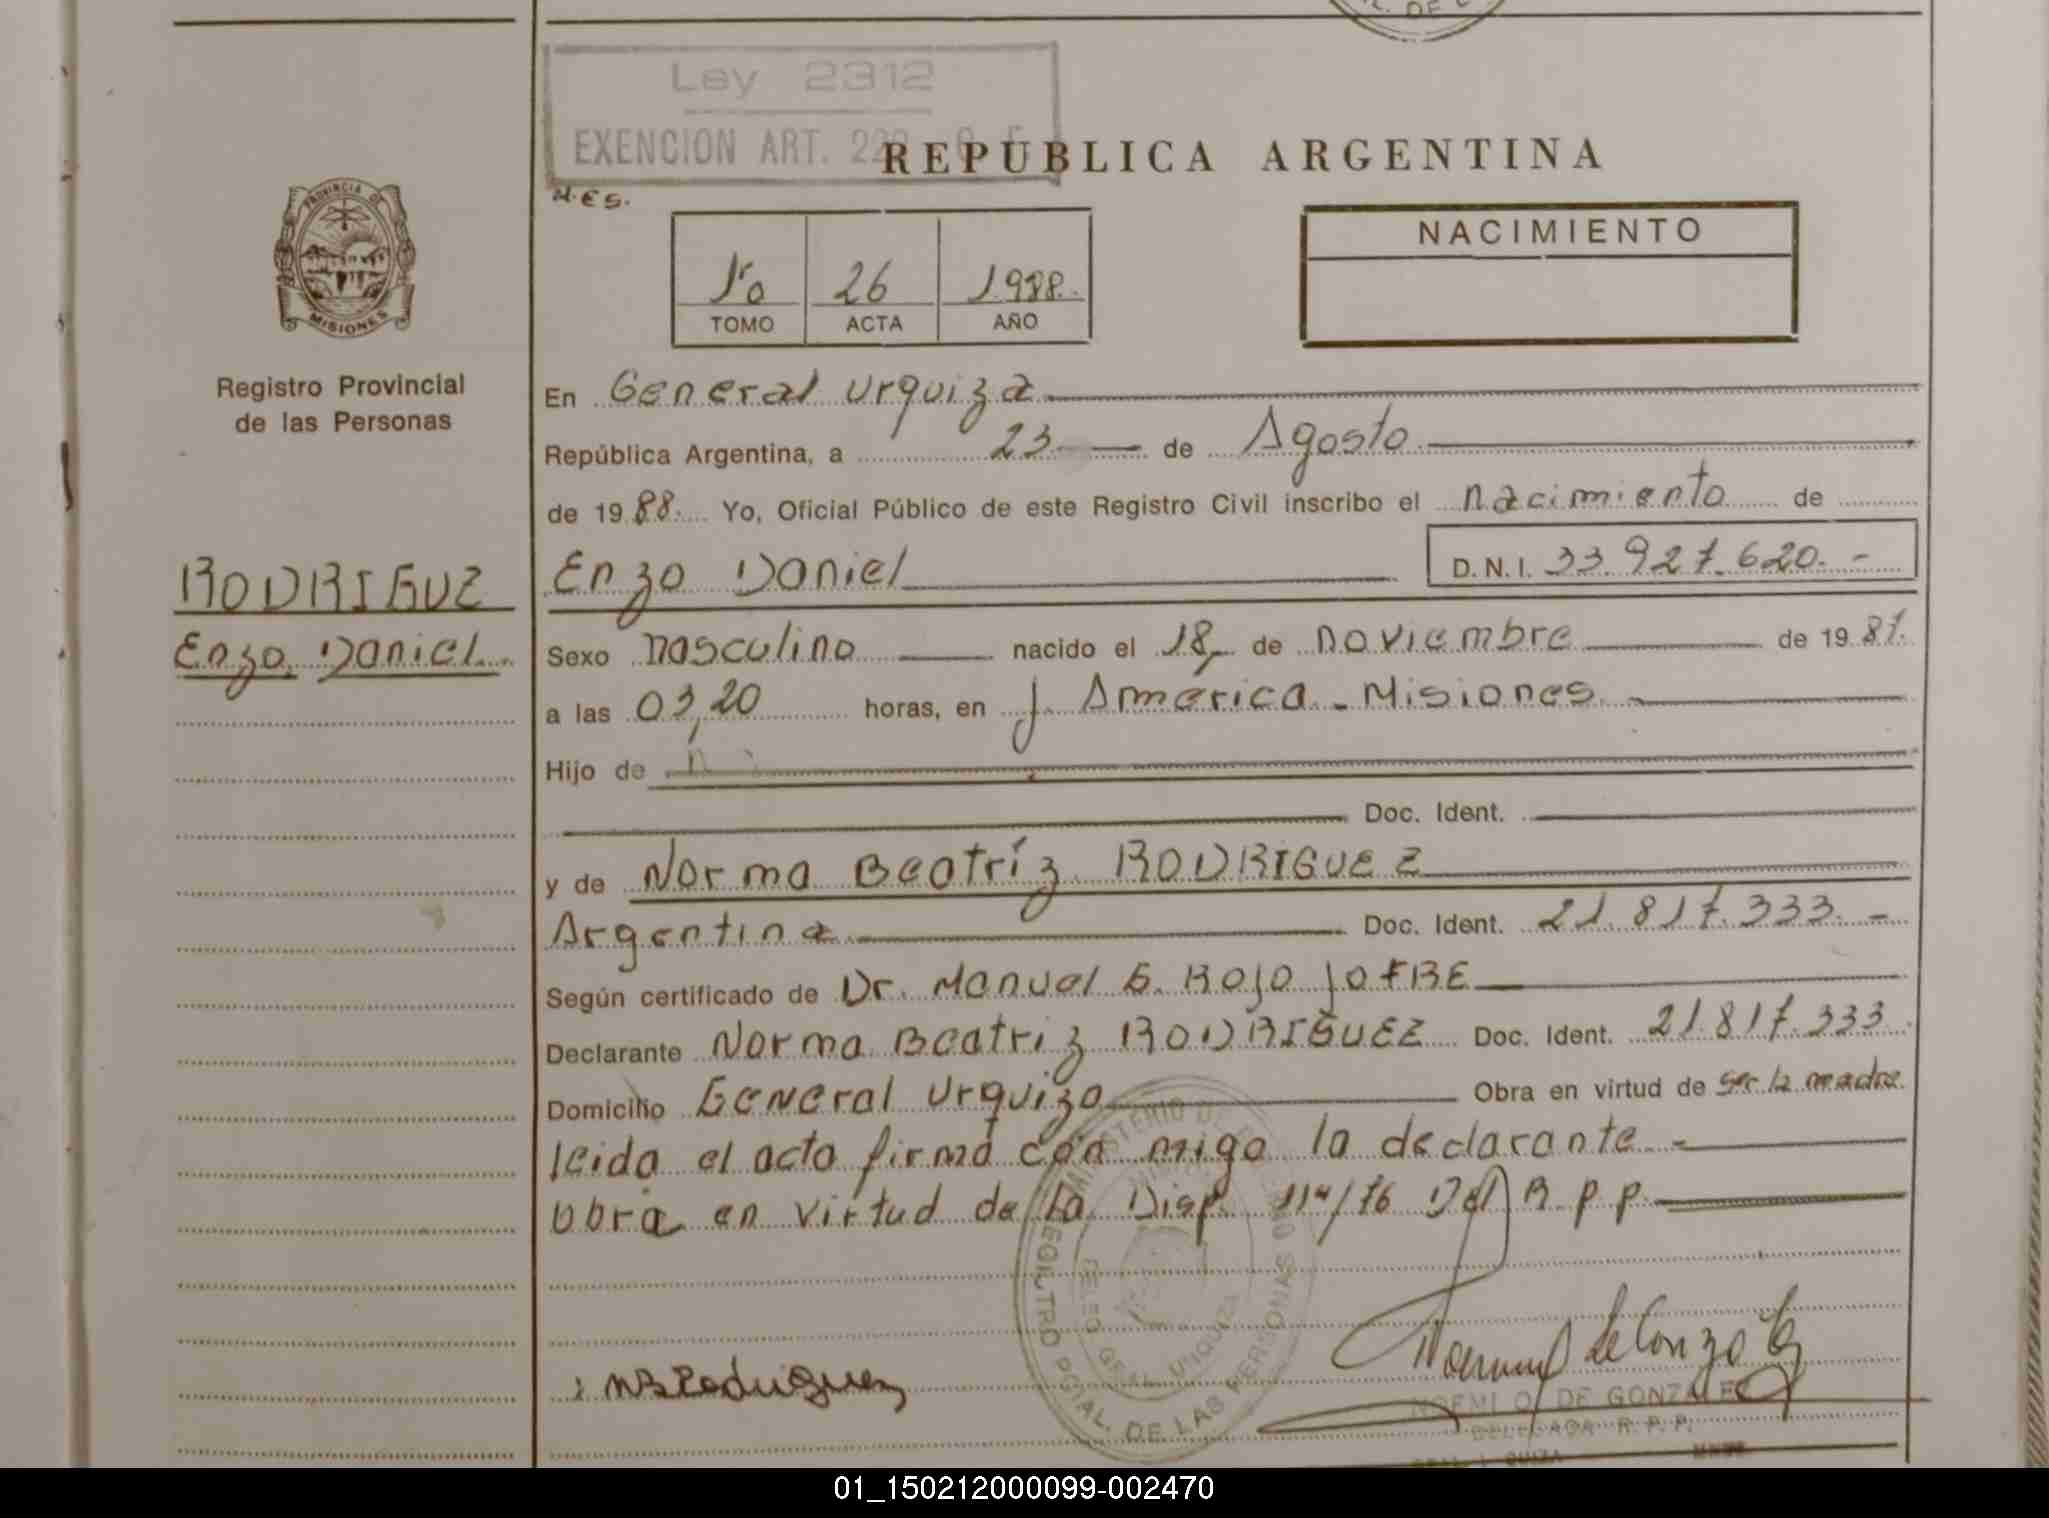 AL. DE L
Ley 2312
EXENCION ART. 22
REPUBLICA ARGENTINA
M.ES.
PROVINCIA DE
MISIONES
Registro Provincial
de las Personas
1ro 26 1.988.
TOMO ACTA AÑO
NACIMIENTO
En General Urquiza
República Argentina, a 23 de Agosto
de 1988. Yo, Oficial Público de este Registro Civil inscribo el nacimiento de
RODRIGUEZ
Enzo Daniel
Enzo Daniel D.N.I. 33.927.620.-
Sexo masculino nacido el 18, de noviembre de 1987.
a las 03,20 horas, en J. America - Misiones
Hijo de
Doc. Ident.
y de Norma Beatríz RODRIGUEZ
Argentina Doc. Ident. 21.817.333.-
Según certificado de Dr. Manuel E. Rojo JOFRE
Declarante Norma Beatriz RODRIGUEZ Doc. Ident. 21.817.333
Domicilio General Urquiza Obra en virtud de ser la madre
leida el acta firma con migo la declarante.-
Obra en virtud de la Disp. 114/76 Del R.P.P.
MINISTERIO DE GOBIERNO
REGISTRO PCIAL. DE LAS PERSONAS
GRAL. URQUIZA
NBRodriguez
NOEMI O. DE GONZALEZ
DELEGADA R.P.P.
01_150212000099-002470